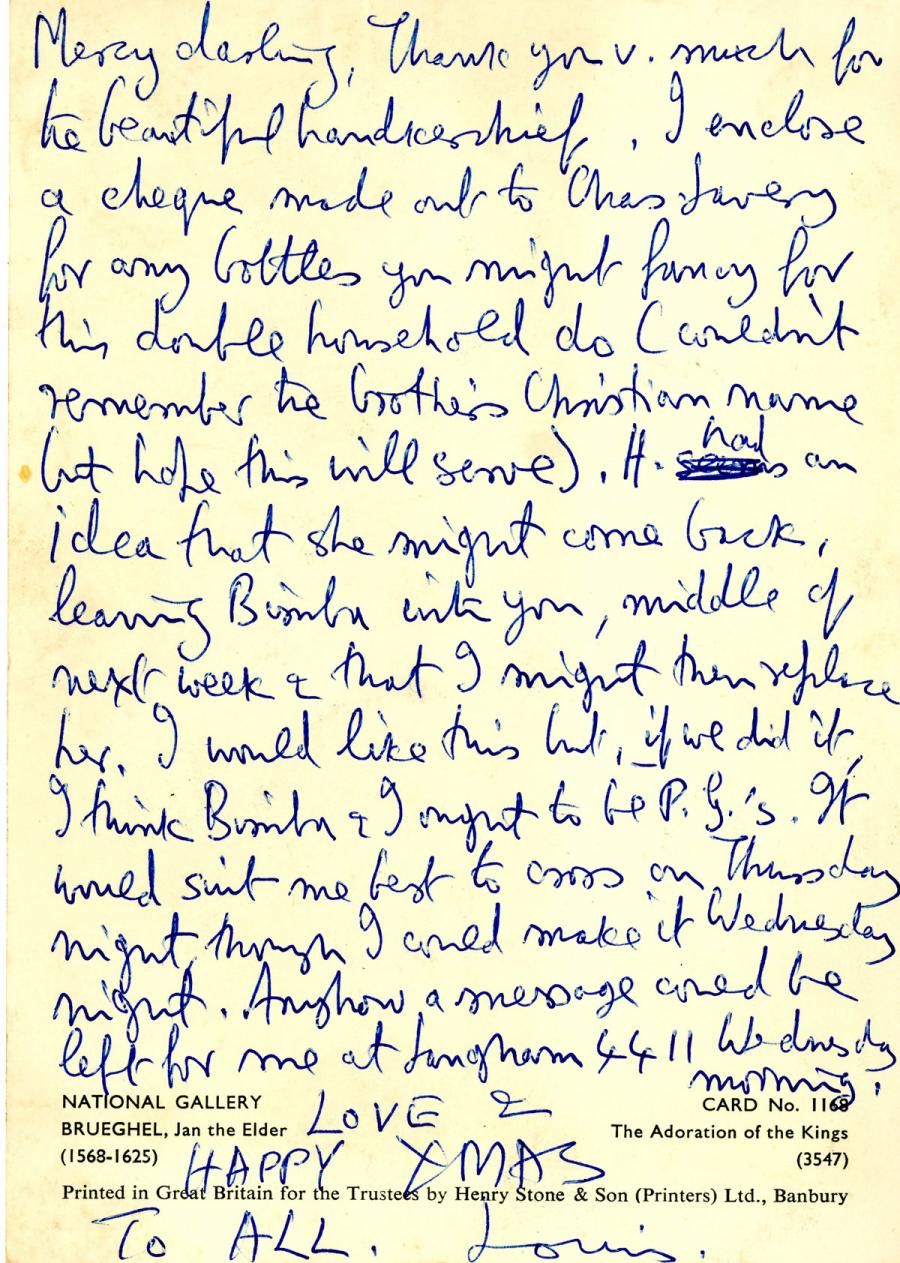 Mercy darling, Thank you v. much for
the beautiful handkerchief. I enclose
a cheque made out to Chas Lavery
for any bottles you might fancy for
this double household do (couldn't
remember the brother's Christian name
but hope this will serve). H. had an
idea that she might come back,
leaving Bimba with you, middle of
next week & that I might then replace
her. I would like this but, if we did it,
I think Bimba & I ought to be P.G.'s. It
would suit me best to cross on Thursday
night, though I could make it Wednesday
night. Anyhow a message could be
left for me at Langham 4411 Wednesday
morning.
NATIONAL GALLERY
BRUEGHEL, Jan the Elder
(1568-1625)
CARD No. 1168
The Adoration of the Kings
(3547)
LOVE &
HAPPY XMAS
Printed in Great Britain for the Trustees by Henry Stone & Son (Printers) Ltd., Banbury
TO ALL. Louis.